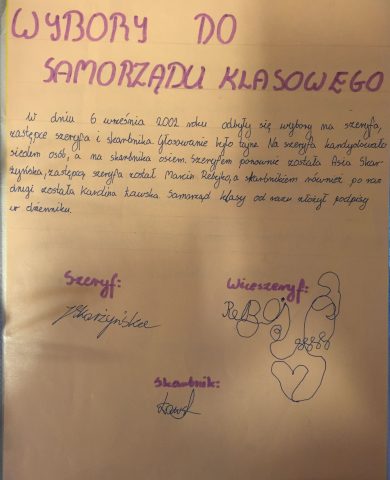 WYBORY DO
SAMORZĄDU KLASOWEGO
W dniu 6 września 2002 roku odbyły się wybory na szeryfa,
zastępce szeryfa i skarbnika. Głosowanie było tajne. Na szeryfa kandydowało
siedem osób, a na skarbnika osiem. Szeryfem ponownie została Asia Skar-
żyńska, zastępcą szeryfa został Marcin Rebejko, a skarbnikiem również po raz
drugi została Karolina Ławska. Samorząd klasy od razu złożył podpisy
w dzienniku.
Szeryf: Wiceszeryf:
JSkarżyńska
Skarbnik: